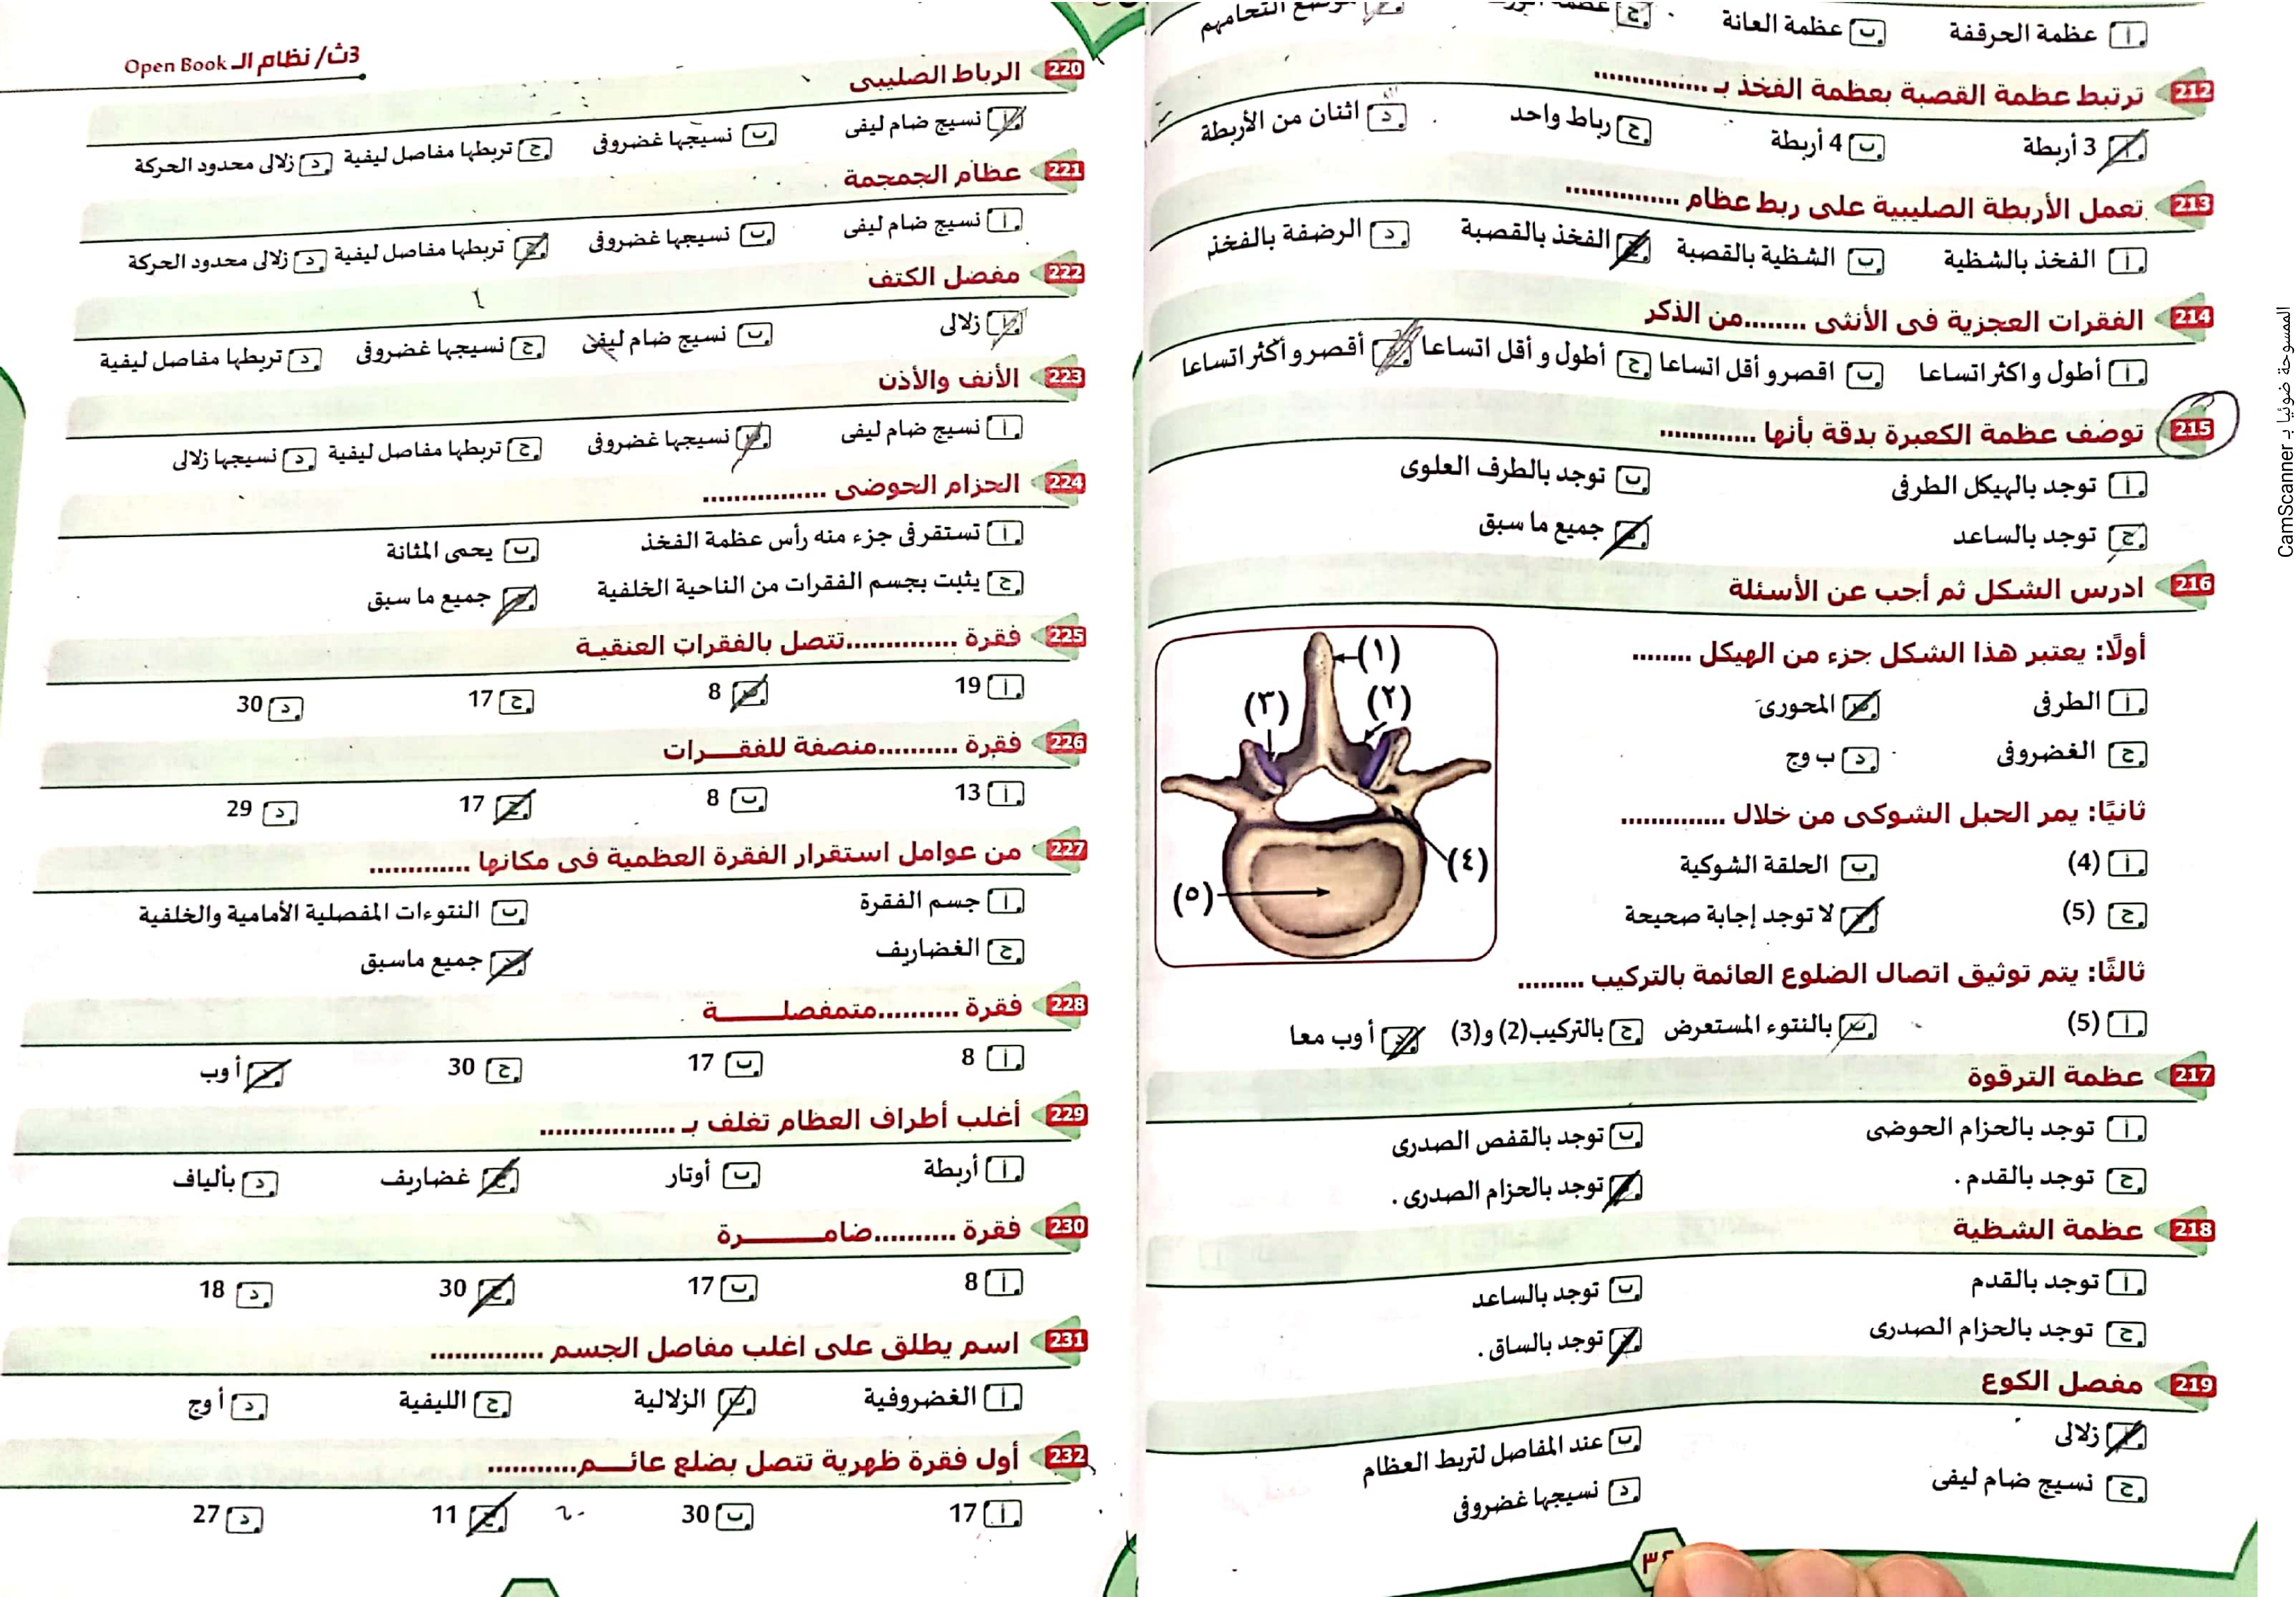 أ عظمة الحرقفة ب عظمة العانة ج
212 ترتبط عظمة القصبة بعظمة الفخذ بـ ............
أ 3 أربطة ب 4 أربطة ج رباط واحد د اثنان من الأربطة
213 تعمل الأربطة الصليبية على ربط عظام ............
أ الفخذ بالشظية ب الشظية بالقصبة ج الفخذ بالقصبة د الرضفة بالفخذ
214 الفقرات العجزية فى الأنثى ........من الذكر
أ أطول و اكثر اتساعا ب اقصر و أقل اتساعا ج أطول و أقل اتساعا د أقصر و أكثر اتساعا
215 توصف عظمة الكعبرة بدقة بأنها ............
أ توجد بالهيكل الطرفى ب توجد بالطرف العلوى
ج توجد بالساعد د جميع ما سبق
216 ادرس الشكل ثم أجب عن الأسئلة
أولًا: يعتبر هذا الشكل جزء من الهيكل ........
أ الطرفى ب المحورى
ج الغضروفى د ب وج
ثانيًا: يمر الحبل الشوكى من خلال .............
أ (4) ب الحلقة الشوكية
ج (5) د لا توجد إجابة صحيحة
ثالثًا: يتم توثيق اتصال الضلوع العائمة بالتركيب .........
أ (5) ب بالنتوء المستعرض ج بالتركيب(2) و(3) د أ وب معا
(١)
(٢)
(٣)
(٤)
(٥)
217 عظمة الترقوة
أ توجد بالحزام الحوضى ب توجد بالقفص الصدرى
ج توجد بالقدم . د توجد بالحزام الصدرى .
218 عظمة الشظية
أ توجد بالقدم ب توجد بالساعد
ج توجد بالحزام الصدرى د توجد بالساق .
219 مفصل الكوع
أ زلالى ب عند المفاصل لتربط العظام
ج نسيج ضام ليفى د نسيجها غضروفى
3ث/ نظام الـ Open Book
220 الرباط الصليبى
أ نسيج ضام ليفى ب نسيجها غضروفى ج تربطها مفاصل ليفية د زلالى محدود الحركة
221 عظام الجمجمة
أ نسيج ضام ليفى ب نسيجها غضروفى ج تربطها مفاصل ليفية د زلالى محدود الحركة
222 مفصل الكتف
أ زلالى ب نسيج ضام ليفى ج نسيجها غضروفى د تربطها مفاصل ليفية
223 الأنف والأذن
أ نسيج ضام ليفى ب نسيجها غضروفى ج تربطها مفاصل ليفية د نسيجها زلالى
224 الحزام الحوضى ................
أ تستقر فى جزء منه رأس عظمة الفخذ ب يحمى المثانة
ج يثبت بجسم الفقرات من الناحية الخلفية د جميع ما سبق
225 فقرة ..............تتصل بالفقرات العنقية
أ 19 ب 8 ج 17 د 30
226 فقرة ..........منصفة للفقـــرات
أ 13 ب 8 ج 17 د 29
227 من عوامل استقرار الفقرة العظمية فى مكانها .............
أ جسم الفقرة ب النتوءات المفصلية الأمامية والخلفية
ج الغضاريف د جميع ماسبق
228 فقرة ..........متمفصلـــــة
أ 8 ب 17 ج 30 د أ وب
229 أغلب أطراف العظام تغلف بـ .................
أ أربطة ب أوتار ج غضاريف د بألياف
230 فقرة ..........ضامـــــــرة
أ 8 ب 17 ج 30 د 18
231 اسم يطلق على اغلب مفاصل الجسم ..............
أ الغضروفية ب الزلالية ج الليفية د أ وج
232 أول فقرة ظهرية تتصل بضلع عائـــم...........
أ 17 ب 30 ج 11 د 27
الممسوحة ضوئيا بـ CamScanner